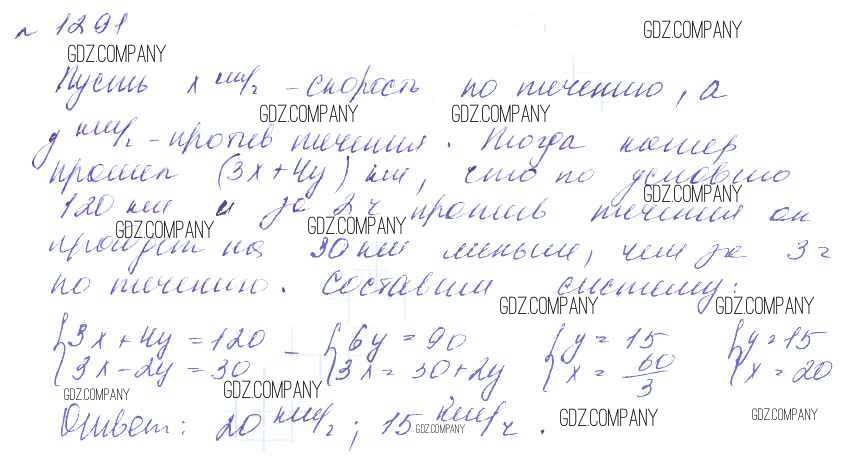 № 1291
GDZ.COMPANY GDZ.COMPANY
Пусть x км/ч – скорость по течению, а
GDZ.COMPANY GDZ.COMPANY
y км/ч – против течения. Тогда катер
прошел (3x+4y) км, что по условию
GDZ.COMPANY
120 км и за 2ч против течения он
GDZ.COMPANY GDZ.COMPANY
пройдет на 30 км меньше, чем за 3 ч
по течению. Составим систему:
GDZ.COMPANY GDZ.COMPANY
{3x + 4y = 120 – {6y = 90 {y = 15 {y = 15
{3x – 2y = 30 {3x = 30 + 2y {x = 60/3 {x = 20
GDZ.COMPANY GDZ.COMPANY
Ответ: 20 км/ч; 15 км/ч.
GDZ.COMPANY GDZ.COMPANY GDZ.COMPANY